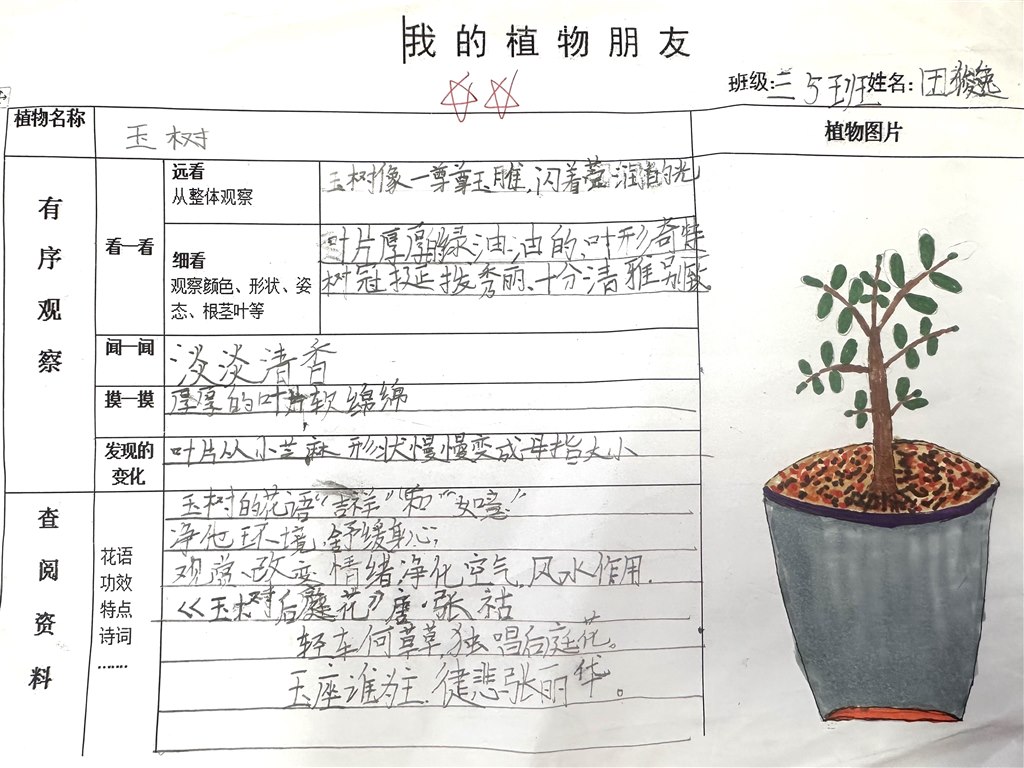 我的植物朋友
班级:三5班姓名:田
植物名称
玉树
植物图片
有序观察
看一看
远看
从整体观察
玉树像一尊尊玉雕,闪着莹润的光
细看
观察颜色、形状、姿
态、根茎叶等
叶片厚厚的绿油油的,叶形奇特
树冠挺拔秀丽、十分清雅别致
闻一闻
淡淡清香
摸一摸
厚厚的叶片软绵绵
发现的
变化
叶片从小芝麻形状慢慢变成母指大小
查阅资料
花语
功效
特点
诗词
……
玉树的花语“吉祥”“和”“如意”
净化环境,舒缓身心;
观赏、改变情绪,净化空气,风水作用.
《玉树后庭花》唐·张祜
轻车何草草,独唱后庭花。
玉座谁为主,徒悲张丽华。